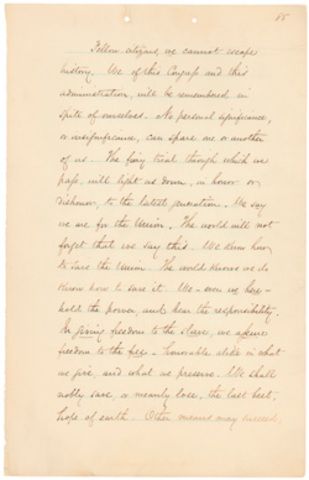 85
Fellow citizens, we cannot escape
history. We of this Congress and this
administration, will be remembered in
spite of ourselves. No personal significance,
or insignificance, can spare one or another
of us. The fiery trial through which we
pass, will light us down, in honor or
dishonor, to the latest generation. We say
we are for the Union. The world will not
forget that we say this. We know how
to save the Union. The world knows we do
know how to save it. We — even we here —
hold the power, and bear the responsibility.
In giving freedom to the slave, we assure
freedom to the free — honorable alike in what
we give, and what we preserve. We shall
nobly save, or meanly lose, the last best,
hope of earth. Other means may succeed,